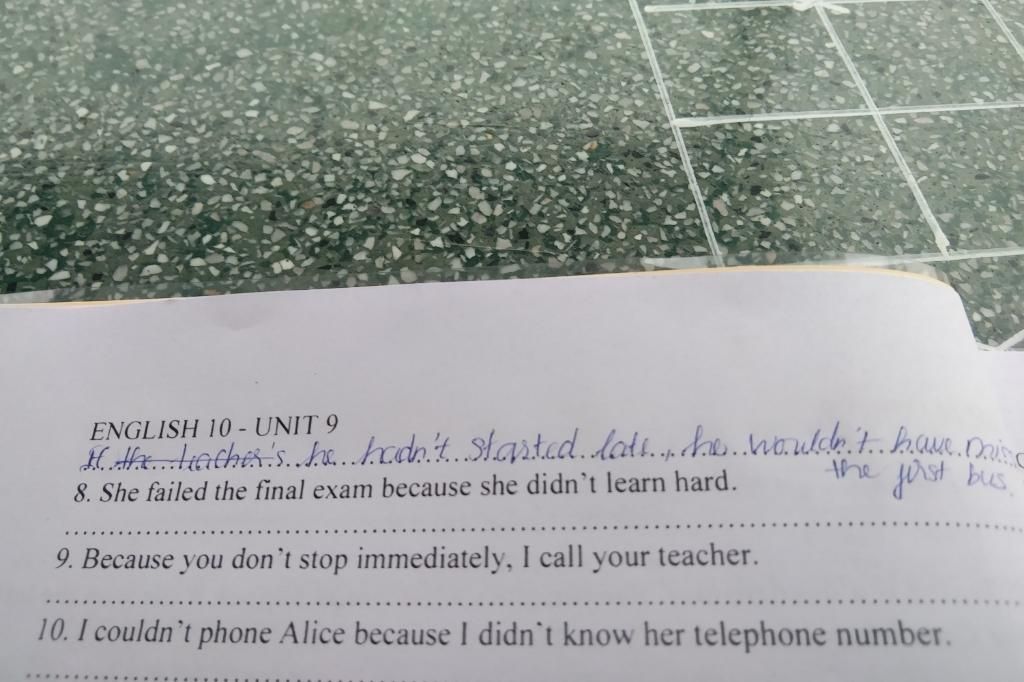 ENGLISH 10 - UNIT 9
If the teacher's he hadn't started late, he wouldn't have
the first bus.
8. She failed the final exam because she didn't learn hard.
9. Because you don't stop immediately, I call your teacher.
10. I couldn't phone Alice because I didn't know her telephone number.